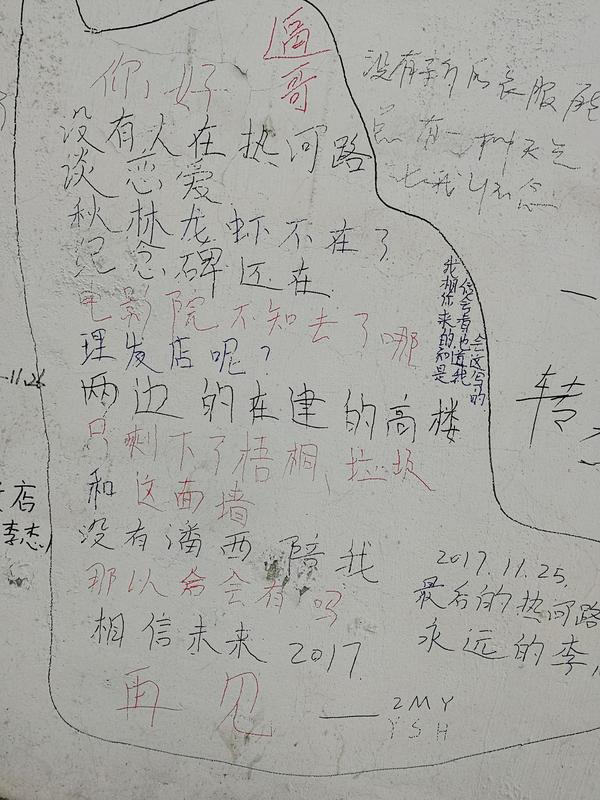 逼哥
你,好
没有人在热河路
谈恋爱
秋林龙虾不在了
纪念碑还在
电影院不知去了哪
理发店呢?
两边的在建的高楼
只剩下了梧桐、垃圾
和这面墙
没有潘西 陪我
那以后会有吗
相信未来 2017.
再见
——2MY
YSH
没有新的衣服
总有一种天气
我相信
你会看
来也
的
和
是
2017.11.25.
最后的热河路
永远的李
转
店
李杰
11.26